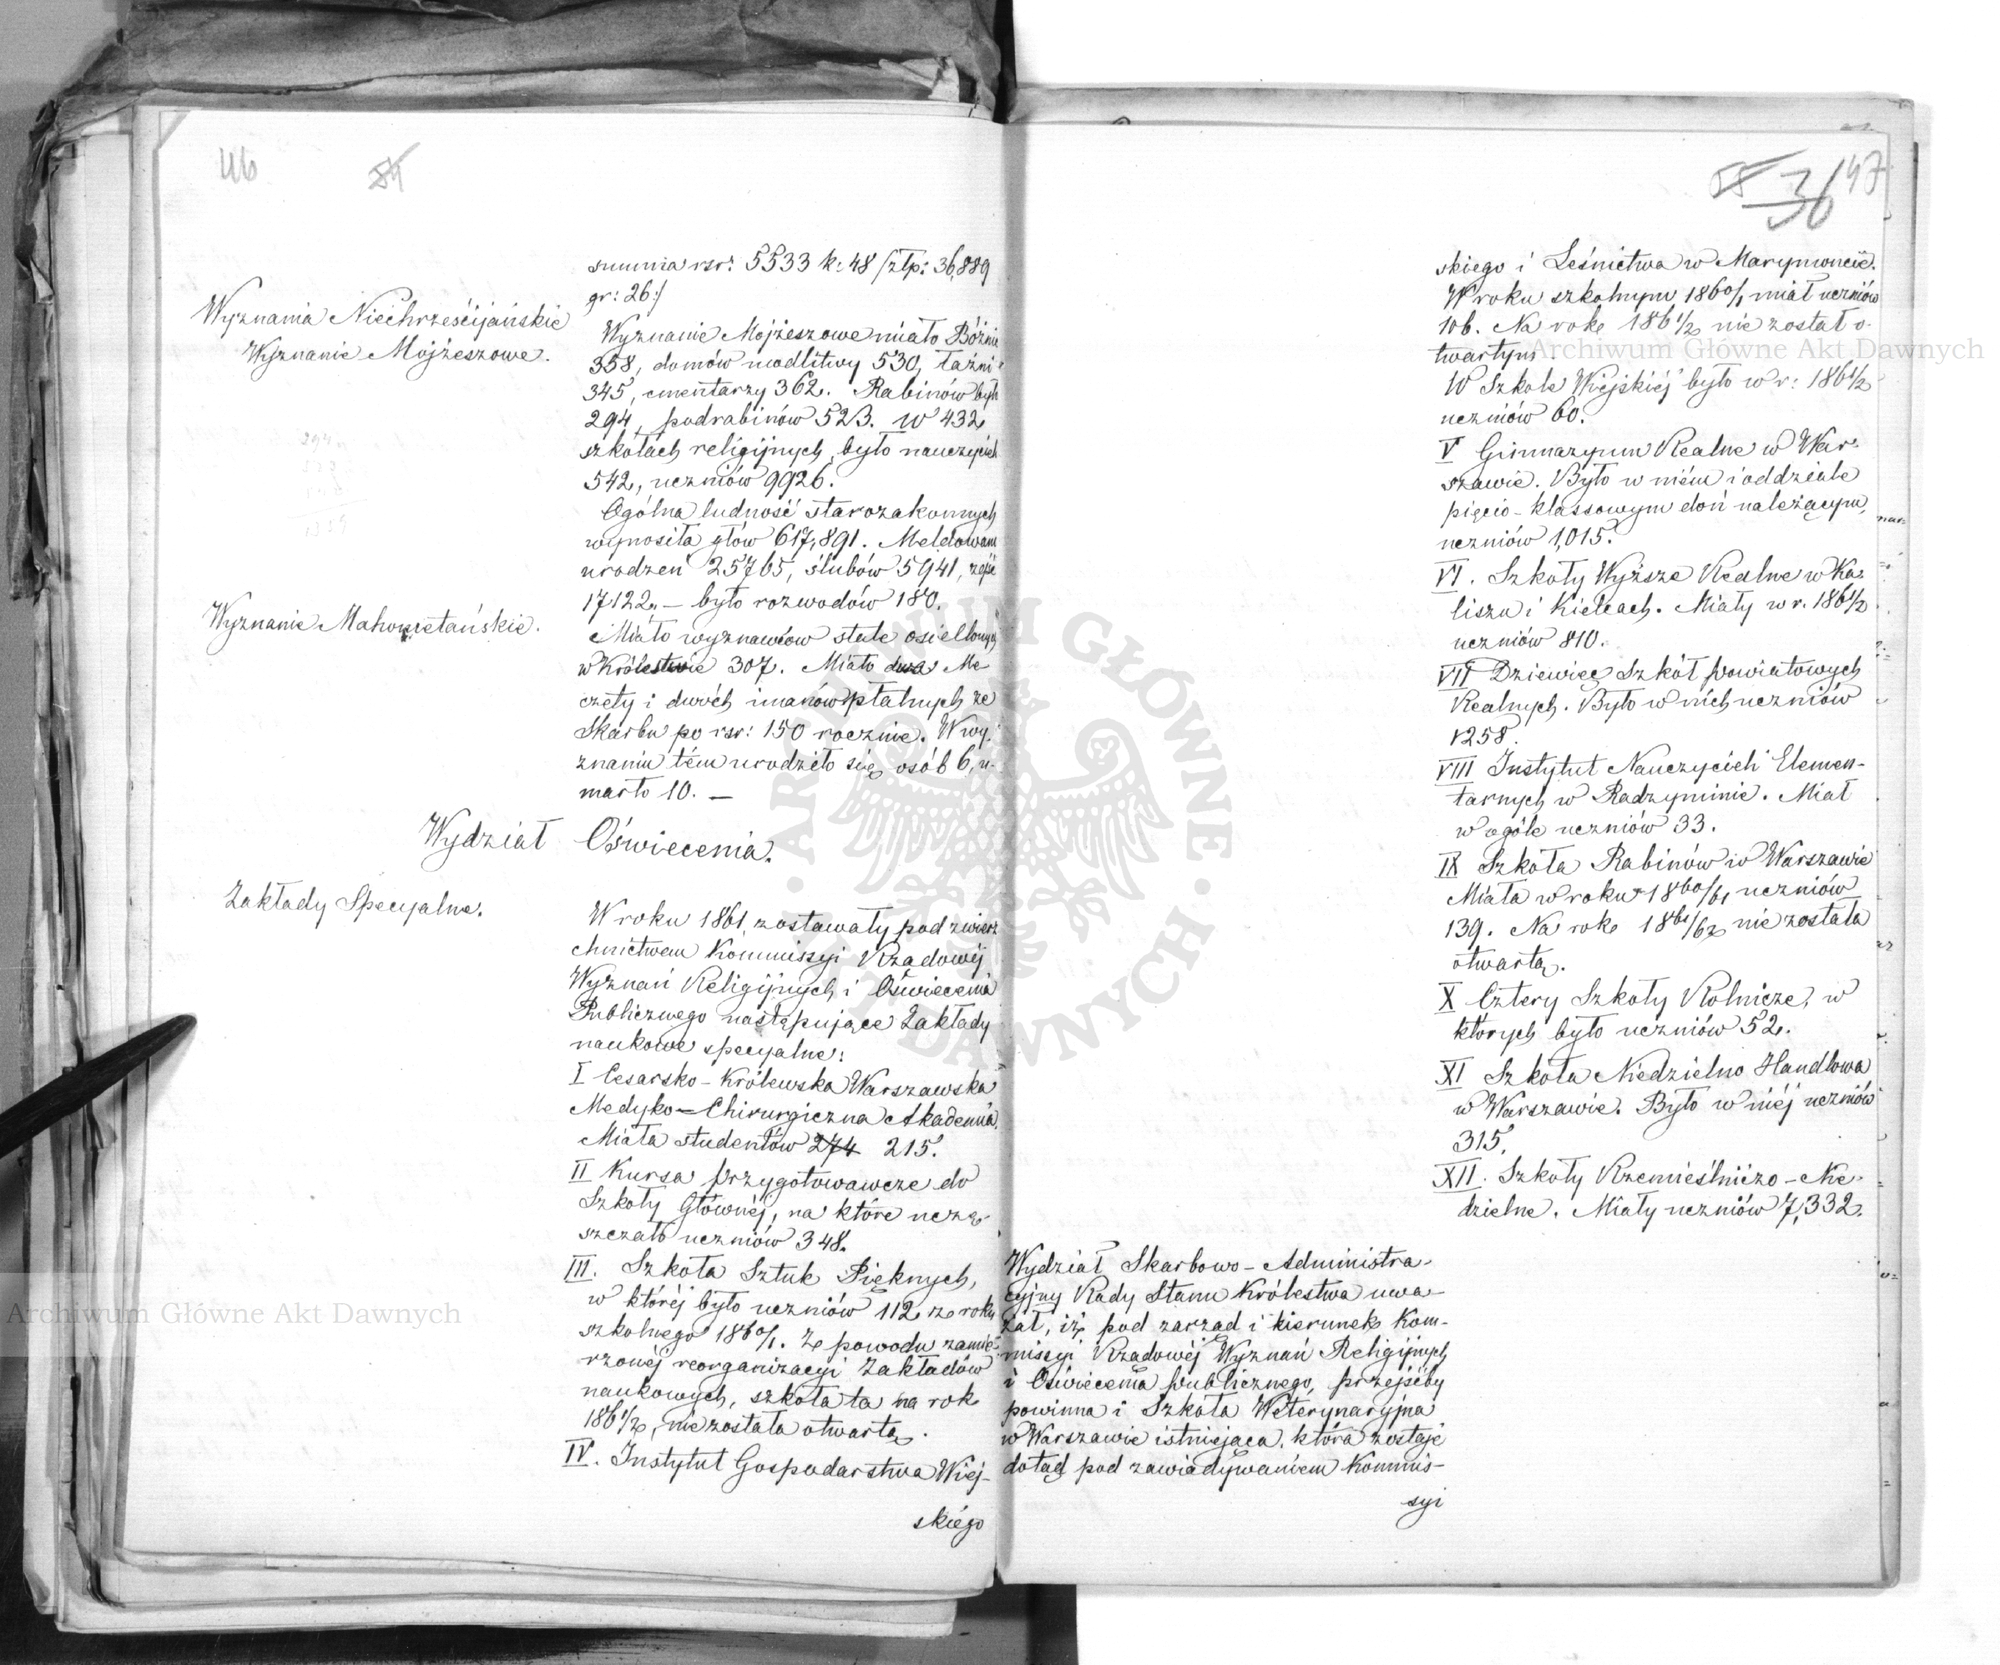 46 54
summa rsr: 5533 k: 48 /złp: 36,889
gr: 26:/
Wyznania Niechrześcijańskie
Wyznanie Mojżeszowe.
Wyznanie Mojżeszowe miało Bóżnic
358, domów modlitwy 530, łaźni
345, cmentarzy 362. Rabinów było
294, podrabinów 523. w 432
szkołach religijnych, było nauczycieli
542, uczniów 9926.
Ogólna ludność starozakonnych
wynosiła głów 617,891. Meldowano
urodzeń 25765, ślubów 5941, zejść
17122, — było rozwodów 180.
Wyznanie Mahometańskie.
Miało wyznawców stale osiedlonych
w Królestwie 307. Miało dwa Me
czety i dwóch imanów płatnych ze
Skarbu po rsr: 150 rocznie. W wy-
znaniu tém urodziło się osób 6, u-
marło 10. —
Wydział Oświecenia.
Zakłady Specyalne.
W roku 1861, zostawały pod zwierz
chnictwem Kommissyi Rządowéj
Wyznań Religijnych i Oświecenia
Publicznego następujące Zakłady
naukowe specyalne:
I Cesarsko-Królewska Warszawska
Medyko-Chirurgiczna Akademia.
Miała studentów 274 215.
II Kursa przygotowawcze do
Szkoły Głównéj, na które uczę-
szczało uczniów 348.
III. Szkoła Sztuk Pięknych,
w któréj było uczniów 112 ze roku
szkolnego 1860/1. Ze powodu zamie-
rzonéj reorganizacyi Zakładów
naukowych, szkoła ta na rok
1861/2, nie została otwartą.
IV. Instytut Gospodarstwa Wiej-
skiego
55 36 47
skiego i Leśnictwa w Marymoncie.
W roku szkolnym 1860/1 miał uczniów
106. Na rok 1861/2 nie został o-
twartym
W Szkole Wiejskiéj było w r: 1861/2
uczniów 60.
V Gimnazyum Realne w War-
szawie. Było w niém i oddziale
pięcio-klassowym doń należącym,
uczniów 1,015.
VI. Szkoły Wyższe Realne w Ka-
liszu i Kielcach. Miały w r. 1861/2
uczniów 810.
VII Dziewięć Szkół powiatowych
Realnych. Było w nich uczniów
1258.
VIII Instytut Nauczycieli Elemen-
tarnych w Radzyminie. Miał
w ogóle uczniów 33.
IX Szkoła Rabinów w Warszawie
Miała w roku 1860/61 uczniów
139. Na rok 1861/62 nie została
otwartą.
X Cztery Szkoły Rolnicze, w
których było uczniów 52.
XI Szkoła Niedzielno Handlowa
w Warszawie. Było w niéj uczniów
315.
XII. Szkoły Rzemieślniczo-Nie-
dzielne. Miały uczniów 7,332.
Wydział Skarbowo-Administra-
cyjny Rady Stanu Królestwa uwa-
żał, iż pod zarząd i kierunek Kom-
missyi Rządowéj Wyznań Religijnych
i Oświecenia publicznego, przejśćby
powinna i Szkoła Weterynaryjna
w Warszawie istniejąca, która zostaje
dotąd pod zawiadywaniem Kommis-
syi
Archiwum Główne Akt Dawnych
Archiwum Główne Akt Dawnych
ARCHIWUM GŁÓWNE AKT DAWNYCH